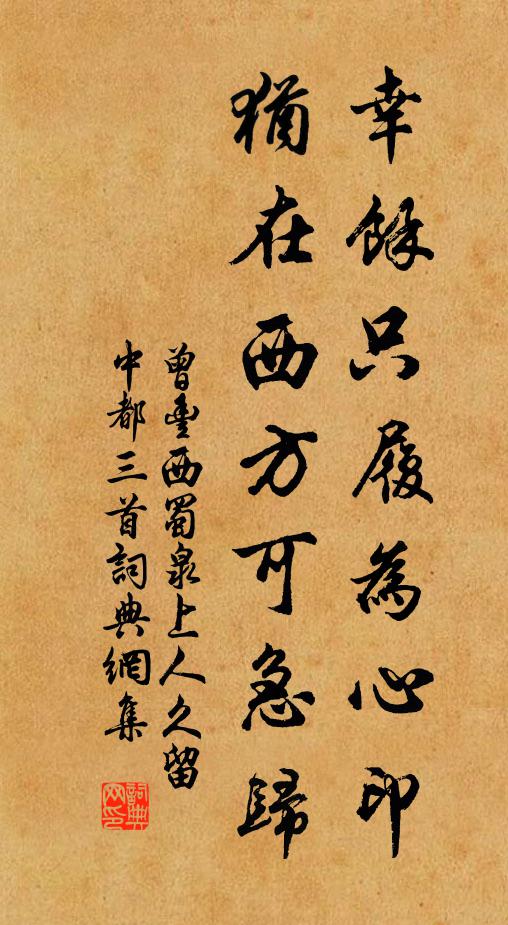 幸餘只履為心印
猶在西方可急歸
曾豐西蜀泉上人久留
中都三首詞典網集
詞典网印